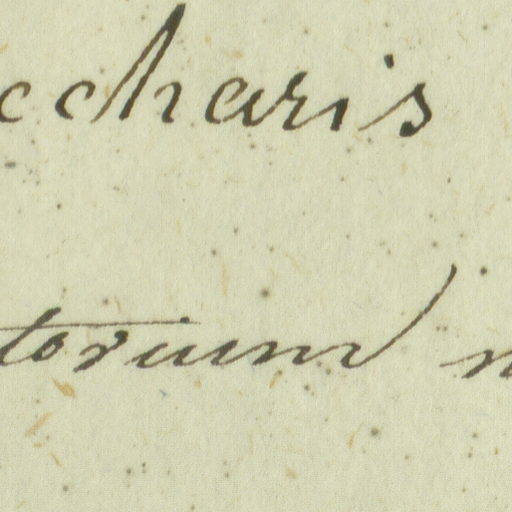 ccharis
torium